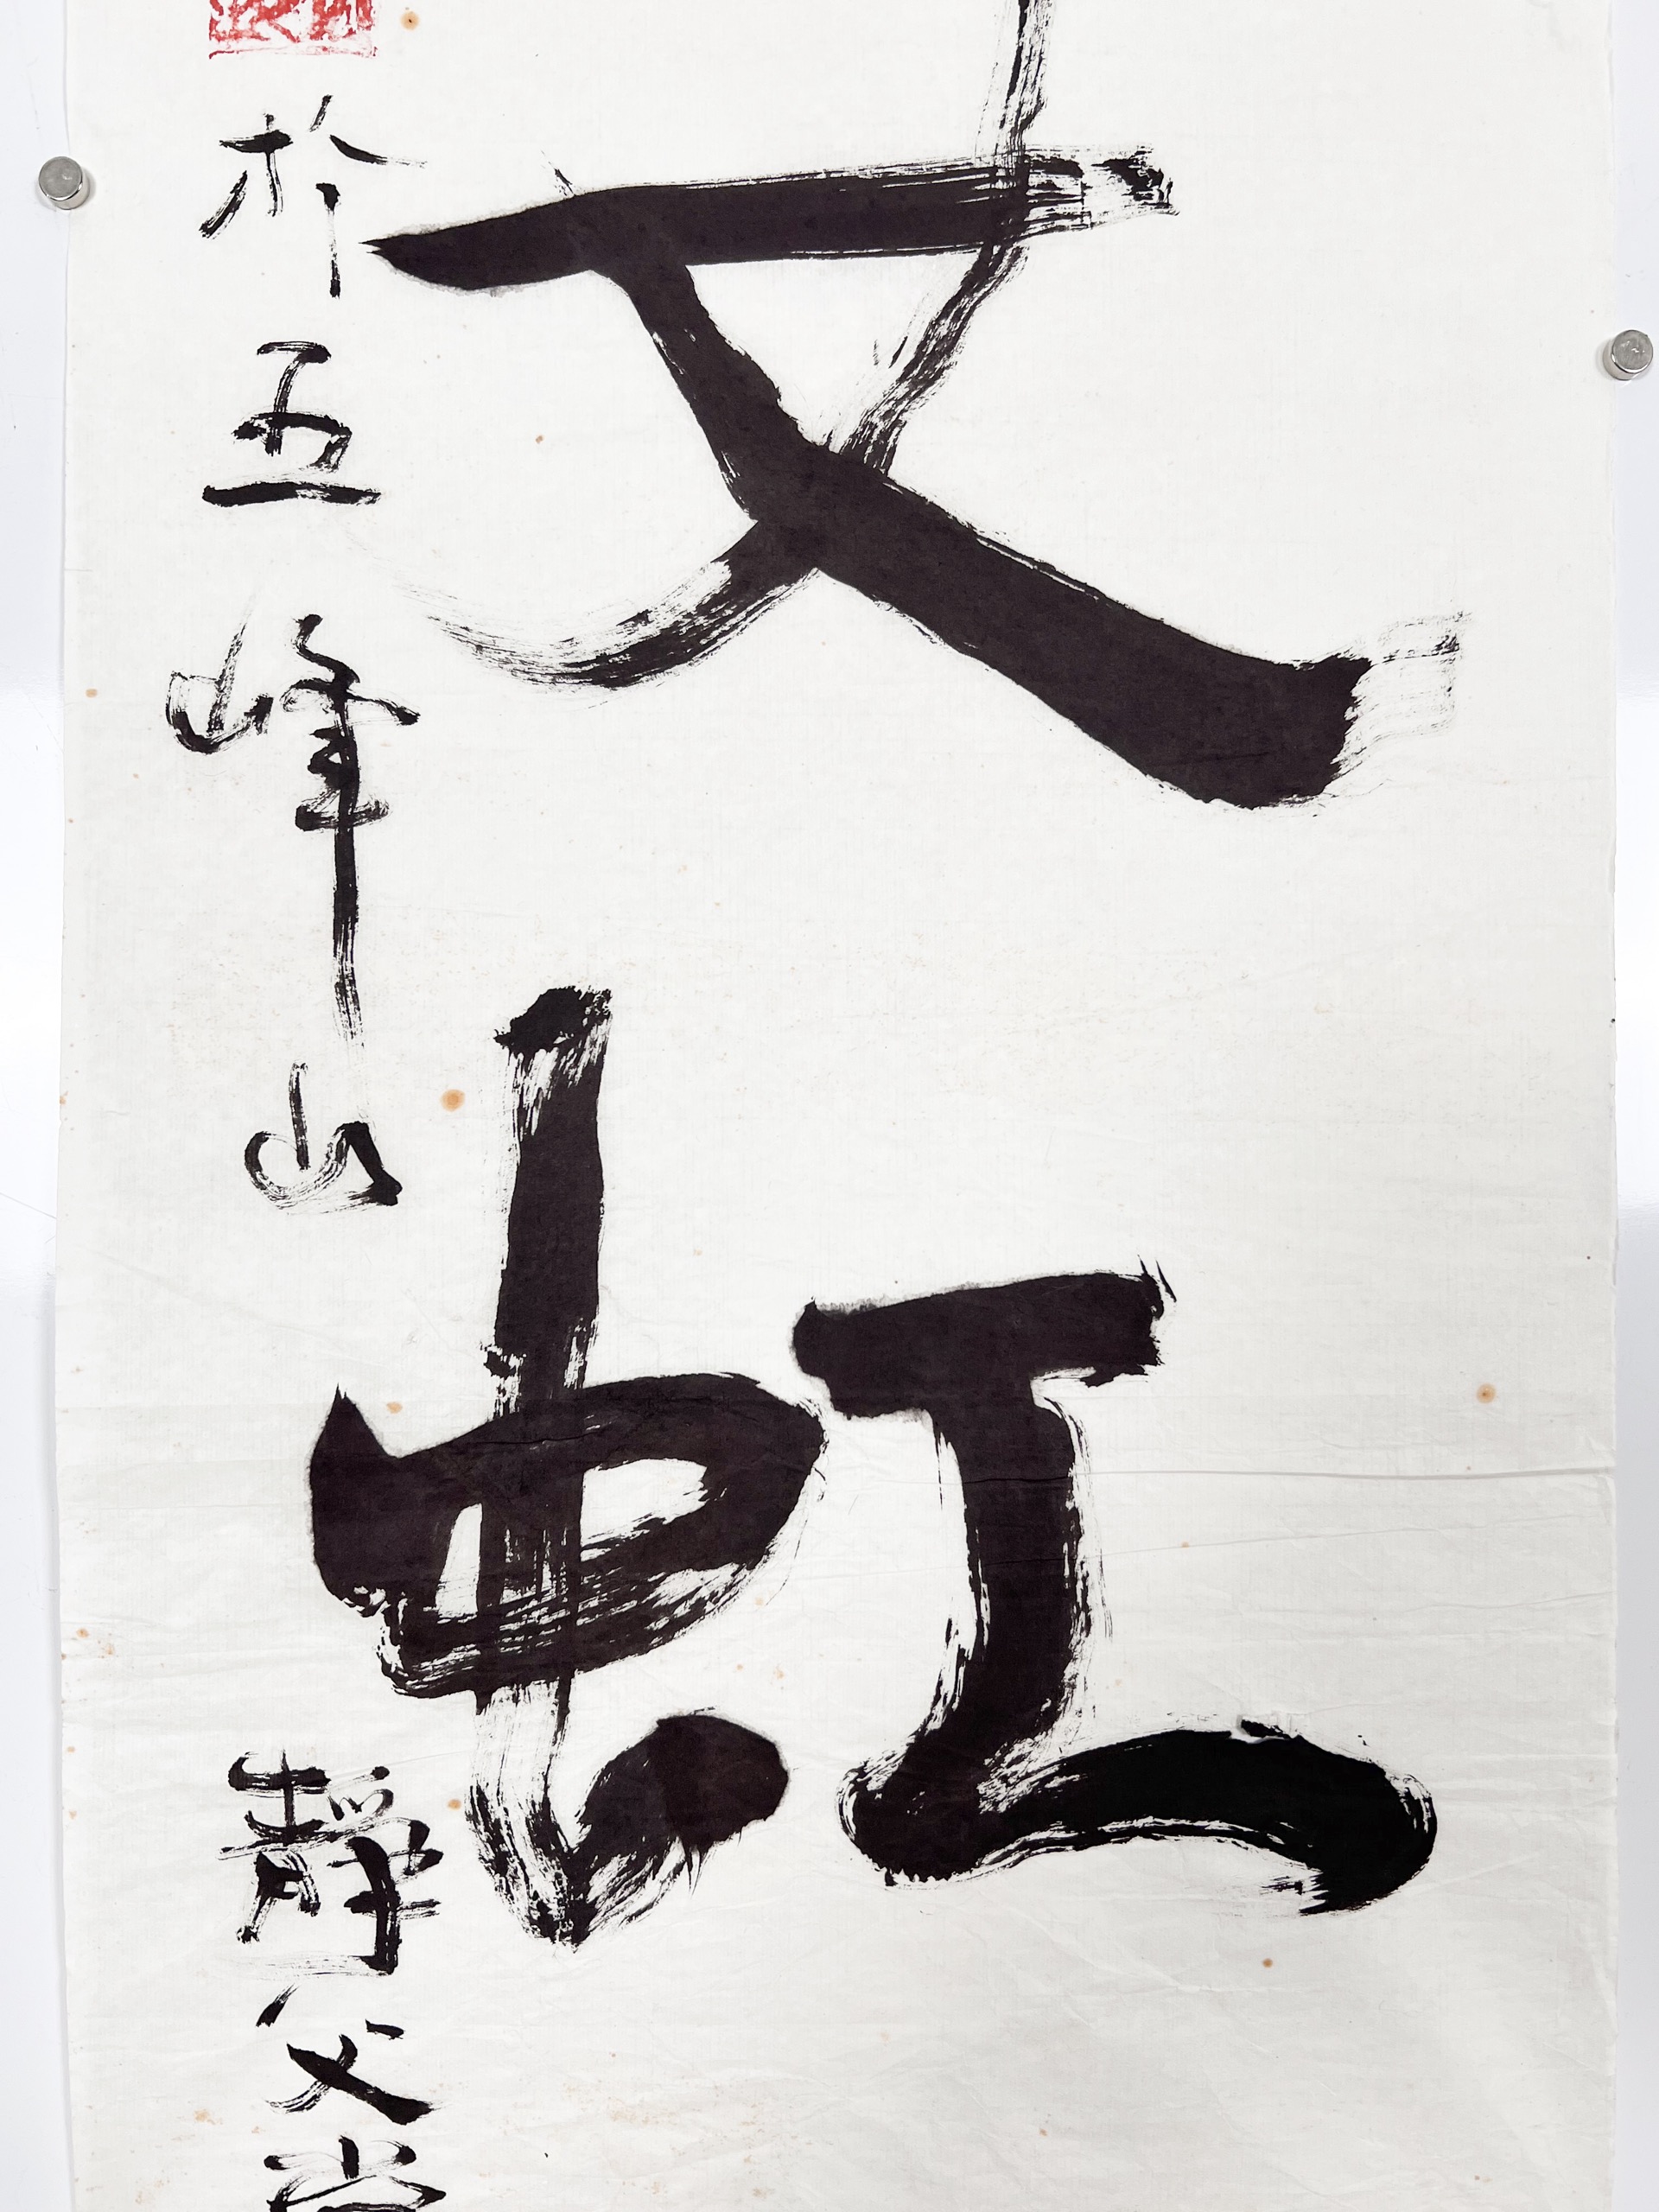 文虹
於五峰山 靜父堂